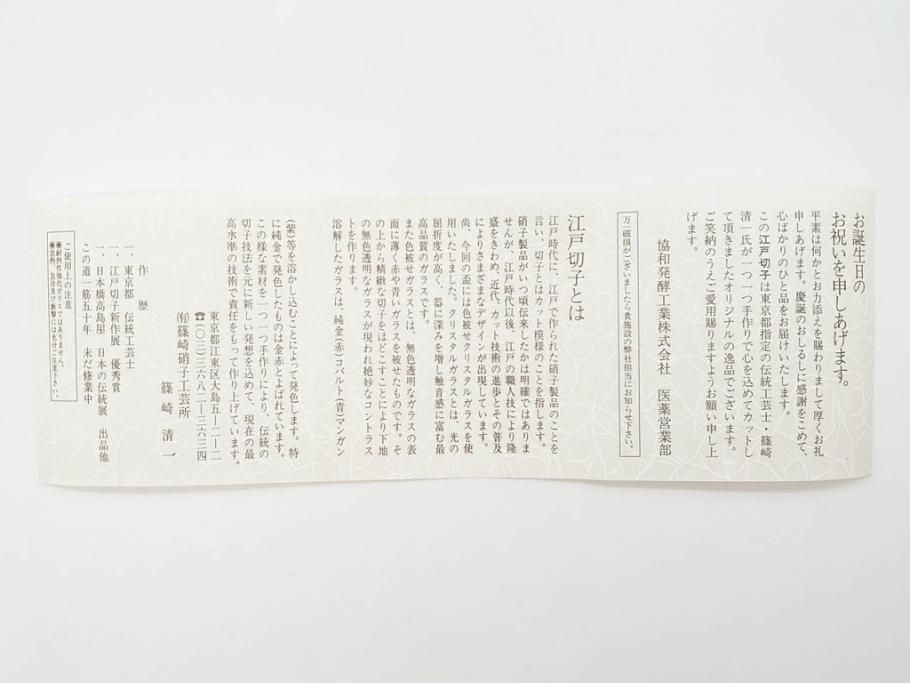 お誕生日の
お祝いを申しあげます。
平素は何かとお力添えを賜わりまして厚くお礼
申しあげます。慶誕のおしるしに感謝をこめて、
心ばかりのひと品をお届けいたします。
この江戸切子は東京都指定の伝統工芸士・篠崎
清一氏が一つ一つ手作りで心を込めてカットし
て頂きましたオリジナルの逸品でございます。
ご笑納のうえご愛用賜りますようお願い申し上
げます。
協和発酵工業株式会社 医薬営業部
万一破損がございましたら貴施設の弊社担当にお知らせ下さい。
江戸切子とは
江戸時代に、江戸で作られた硝子製品のことを
言い、切子とはカット模様のことを指します。
硝子製品がいつ頃伝来したかは明確ではありま
せんが、江戸時代以後、江戸の職人技により隆
盛をきわめ、近代、カット技術の進歩とその普及
によりさまざまなデザインが出現しています。
尚、今回の盃には色被せクリスタルガラスを使
用いたしました。クリスタルガラスとは、光の
屈折度が高く、器に深みを増し触音感に富む最
高品質のガラスです。
また色被せガラスとは、無色透明なガラスの表
面に薄く赤や青いガラスを被せたものです。そ
の上から精緻な切子をほどこすことにより下地
の無色透明なガラスが現われ絶妙なコントラス
トを作ります。
溶解したガラスは、純金(赤)コバルト(青)マンガン
(紫)等を溶かし込むことによって発色します。特
に純金で発色したものは金赤とよばれています。
この様な素材を一つ一つ手作りにより、伝統の
切子技法を元に新しい発想を込めて、現在の最
高水準の技術で責任をもって作り上げています。
東京都江東区大島五ー二ー一二
☎(〇三)三六八二ー二六三四
(有)篠崎硝子工芸所
篠崎清一
作歴
一、東京都 伝統工芸士
一、江戸切子新作展 優秀賞
一、日本橋高島屋 日本の伝統展 出品他
この道一筋五十年 未だ修業中
ご使用上の注意
※耐熱性強化ガラスではありません。
※急熱、急冷及び衝撃には充分ご注意下さい。